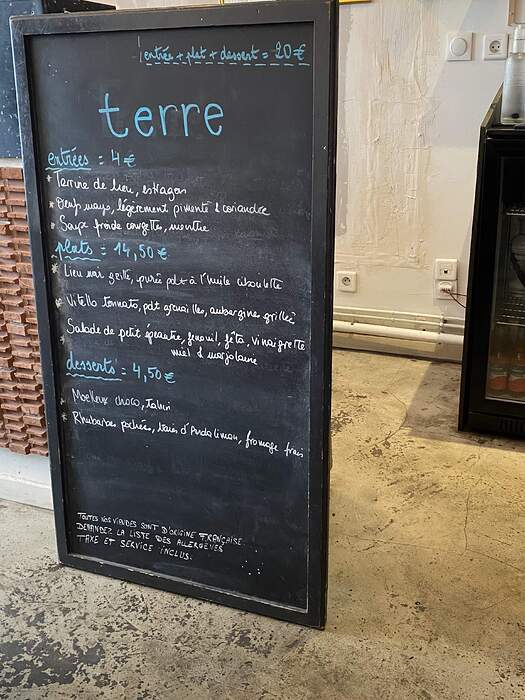 entrée + plat + dessert = 20 €
terre
entrées = 4 €
* Terrine de lieu, estragon
* Oeuf mayo, légèrement pimenté & coriandre
* Soupe froide courgette, menthe
plats = 14,50 €
* Lieu noir grillé, purée pdt à l'huile ciboulette
* Vitello tonnato, pdt grenailles, aubergine grillée
* Salade de petit épeautre, fenouil, fêta, vinaigrette
miel & marjolaine
desserts = 4,50 €
* Moelleux choco, Tahin
* Rhubarbe pochée, baies d'Andaliman, fromage frais
TOUTES NOS VIANDES SONT D'ORIGINE FRANÇAISE
DEMANDEZ LA LISTE DES ALLERGÈNES
TAXE ET SERVICE INCLUS.